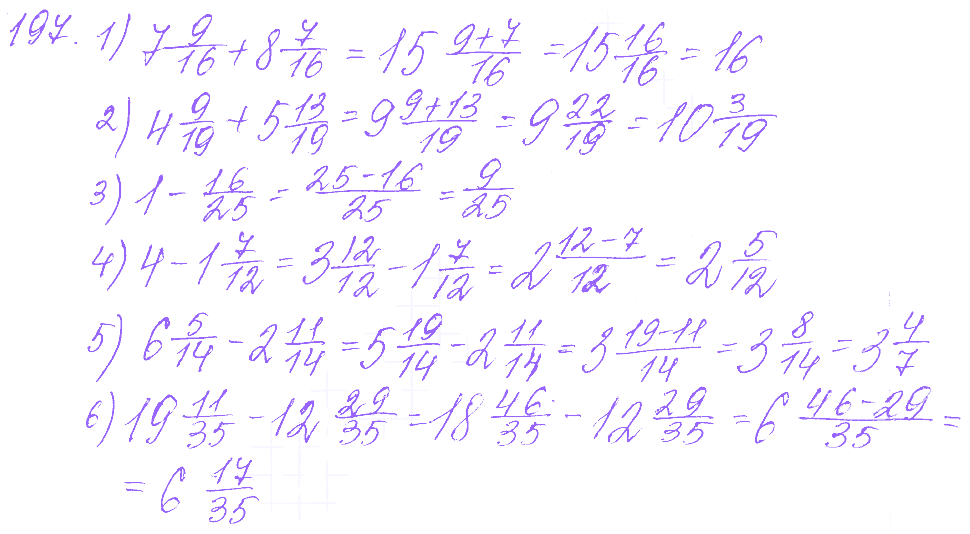 197. 1) 7 9/16 + 8 7/16 = 15 (9+7)/16 = 15 16/16 = 16
2) 4 9/19 + 5 13/19 = 9 (9+13)/19 = 9 22/19 = 10 3/19
3) 1 - 16/25 = (25-16)/25 = 9/25
4) 4 - 1 7/12 = 3 12/12 - 1 7/12 = 2 (12-7)/12 = 2 5/12
5) 6 5/14 - 2 11/14 = 5 19/14 - 2 11/14 = 3 (19-11)/14 = 3 8/14 = 3 4/7
6) 19 11/35 - 12 29/35 = 18 46/35 - 12 29/35 = 6 (46-29)/35 =
= 6 17/35